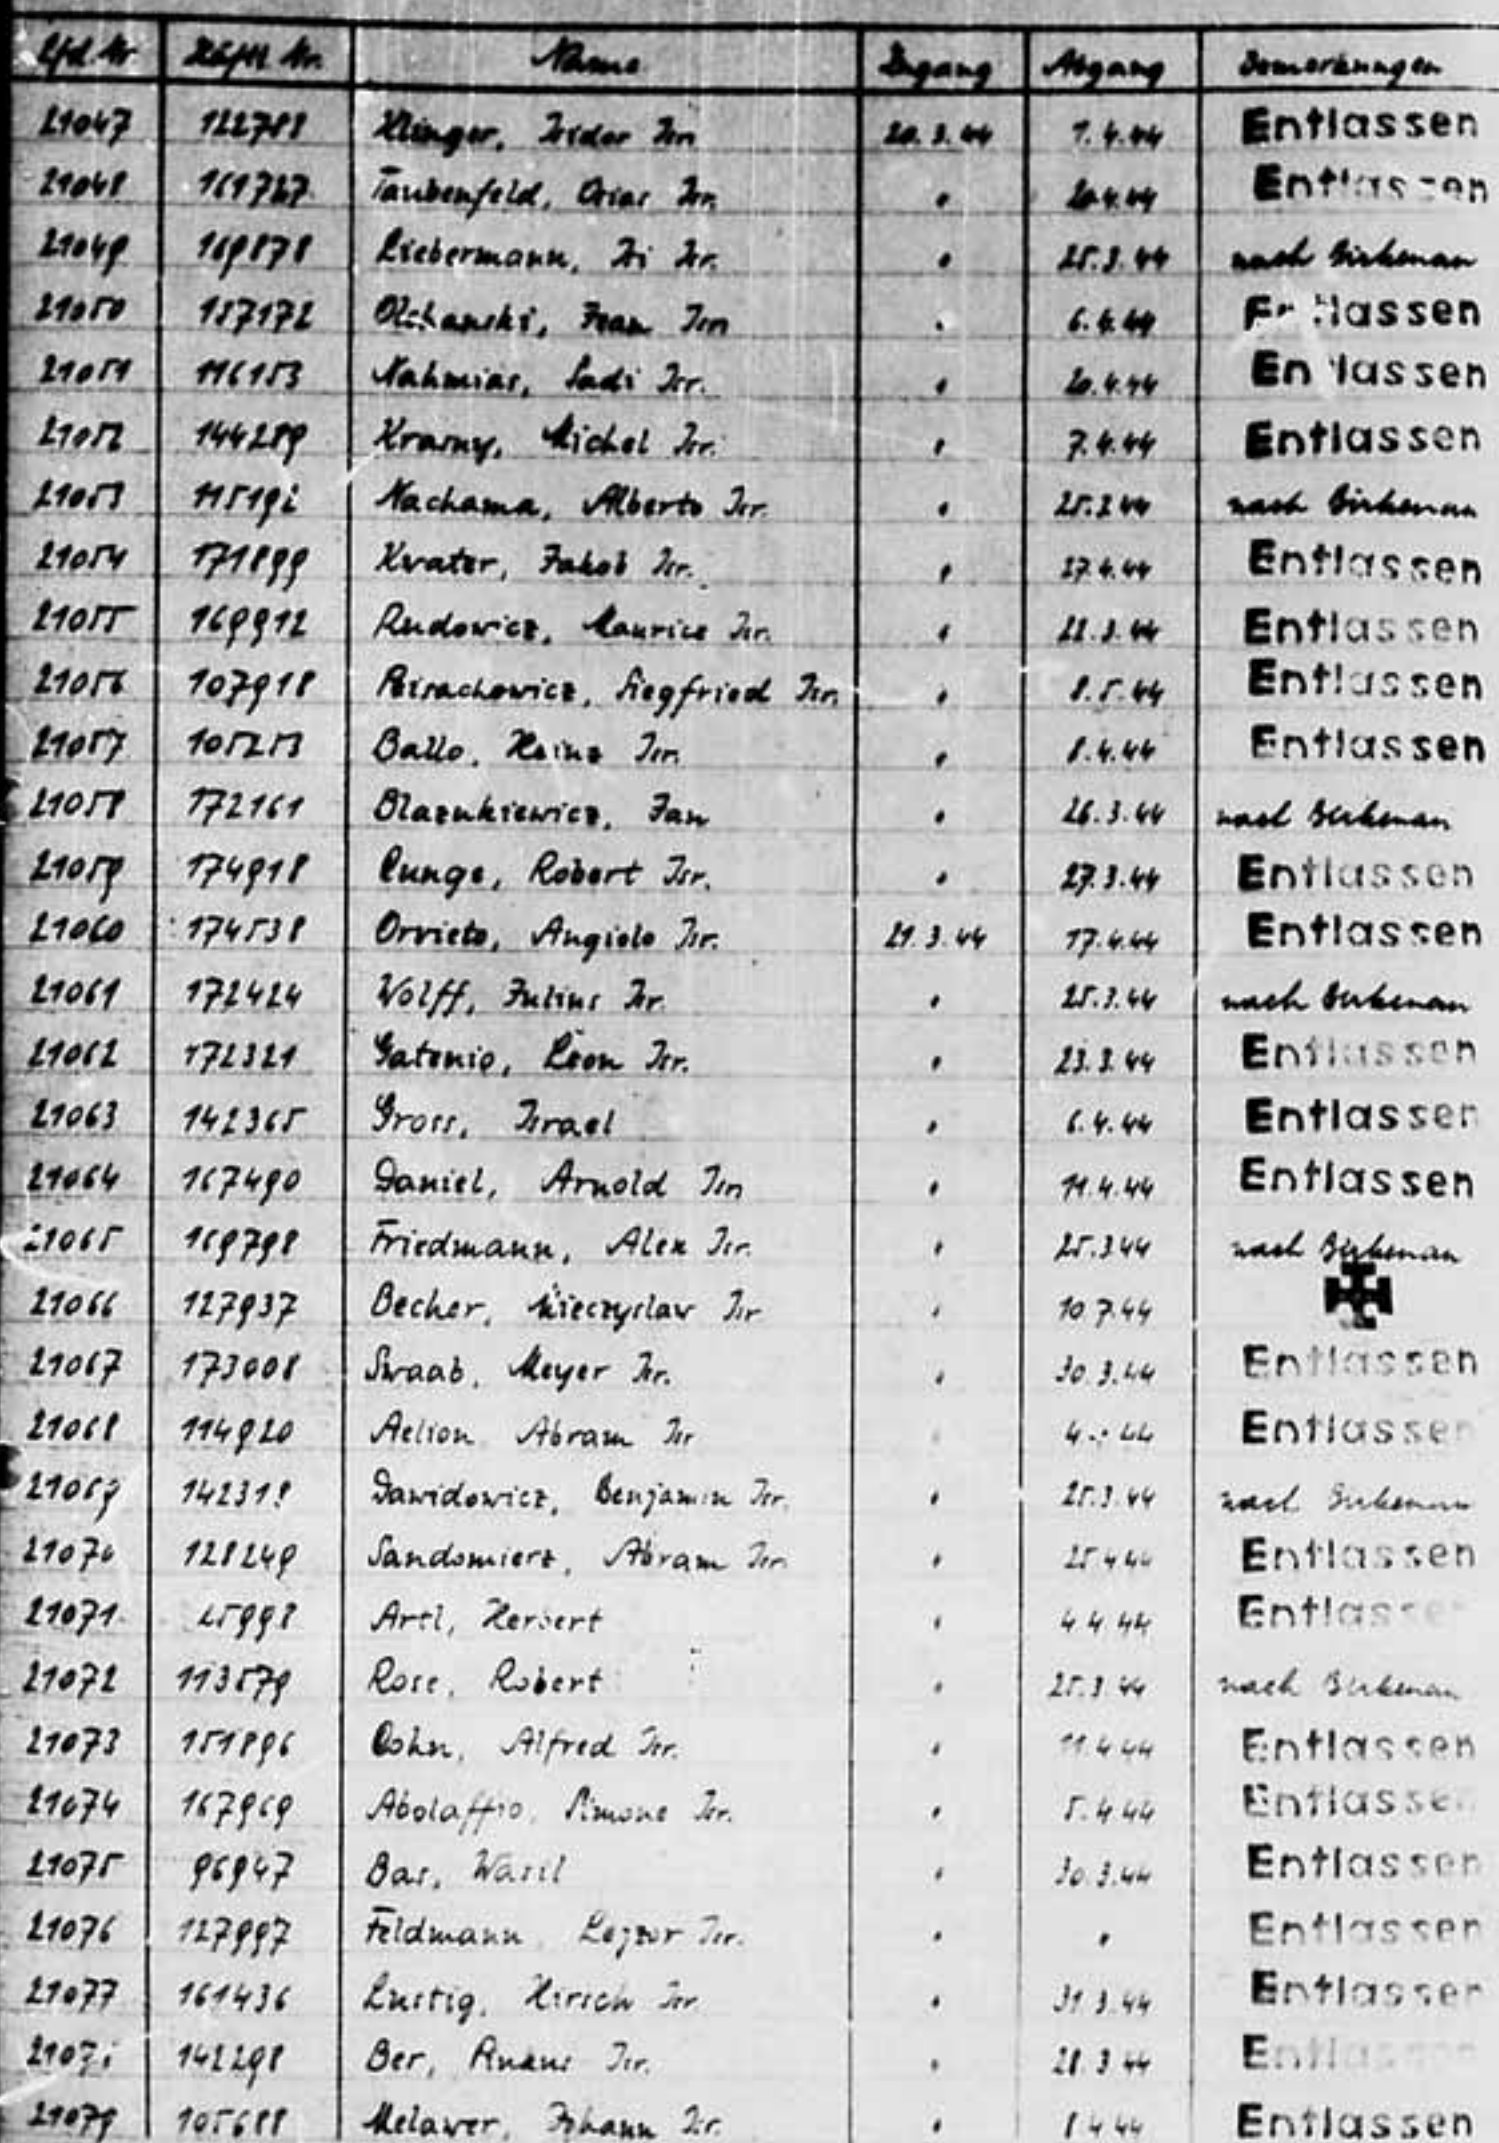 Lfd. Nr. Häftl. Nr. Name Zugang Abgang Bemerkungen
21047 122788 Klinger, Isidor Isr. 20.3.44 1.4.44 Entlassen
21048 161727 Taubenfeld, Isr. " 20.4.44 Entlassen
21049 169878 Liebermann, Isr. " 25.3.44 nach Birkenau
21050 157172 Olchanski, Jean Isr. " 6.4.44 Entlassen
21051 116153 Nahmias, Sadi Isr. " 20.4.44 Entlassen
21052 144289 Krasny, Michel Isr. " 7.4.44 Entlassen
21053 115192 Nachama, Alberto Isr. " 25.3.44 nach Birkenau
21054 171899 Kwater, Jakob Isr. " 27.4.44 Entlassen
21055 169912 Rudowicz, Maurice Isr. " 22.3.44 Entlassen
21056 107918 Peisachowicz, Siegfried Isr. " 8.5.44 Entlassen
21057 105253 Ballo, Heinz Isr. " 8.4.44 Entlassen
21058 172161 Blazukiewicz, Jan " 26.3.44 nach Birkenau
21059 174918 Cunge, Robert Isr. " 27.3.44 Entlassen
21060 174538 Orvieto, Angiolo Isr. 21.3.44 17.4.44 Entlassen
21061 172424 Wolff, Julius Isr. " 25.3.44 nach Birkenau
21062 172321 Gatenio, Leon Isr. " 23.3.44 Entlassen
21063 142365 Gross, Israel " 6.4.44 Entlassen
21064 167490 Daniel, Arnold Isr. " 11.4.44 Entlassen
21065 169798 Friedmann, Alex Isr. " 25.3.44 nach Birkenau
21066 127937 Becher, Mieczyslaw Isr " 10.7.44
21067 173008 Swaab, Meyer Isr. " 30.3.44 Entlassen
21068 114920 Aelion Abram Isr " Entlassen
21069 Dawidowicz, Benjamin Isr. " 25.3.44 nach Birkenau
21070 128249 Sandomierz, Abram Isr. " 25.4.44 Entlassen
21071 25998 Artl, Herbert " 4.4.44 Entlassen
21072 113579 Rose, Robert " 25.3.44 nach Birkenau
21073 151896 Cohn, Alfred Isr. " 11.4.44 Entlassen
21074 167969 Abolaffio, Simone Isr. " 5.4.44 Entlassen
21075 96947 Bas, Wasil " 30.3.44 Entlassen
21076 127997 Feldmann, Lejzor Isr. " " Entlassen
21077 161436 Lustig, Hirsch Isr " 31.3.44 Entlassen
21078 142298 Ber, Isr. " 28.3.44 Entlassen
21079 105688 Melawer, Johann Isr. " 8.4.44 Entlassen